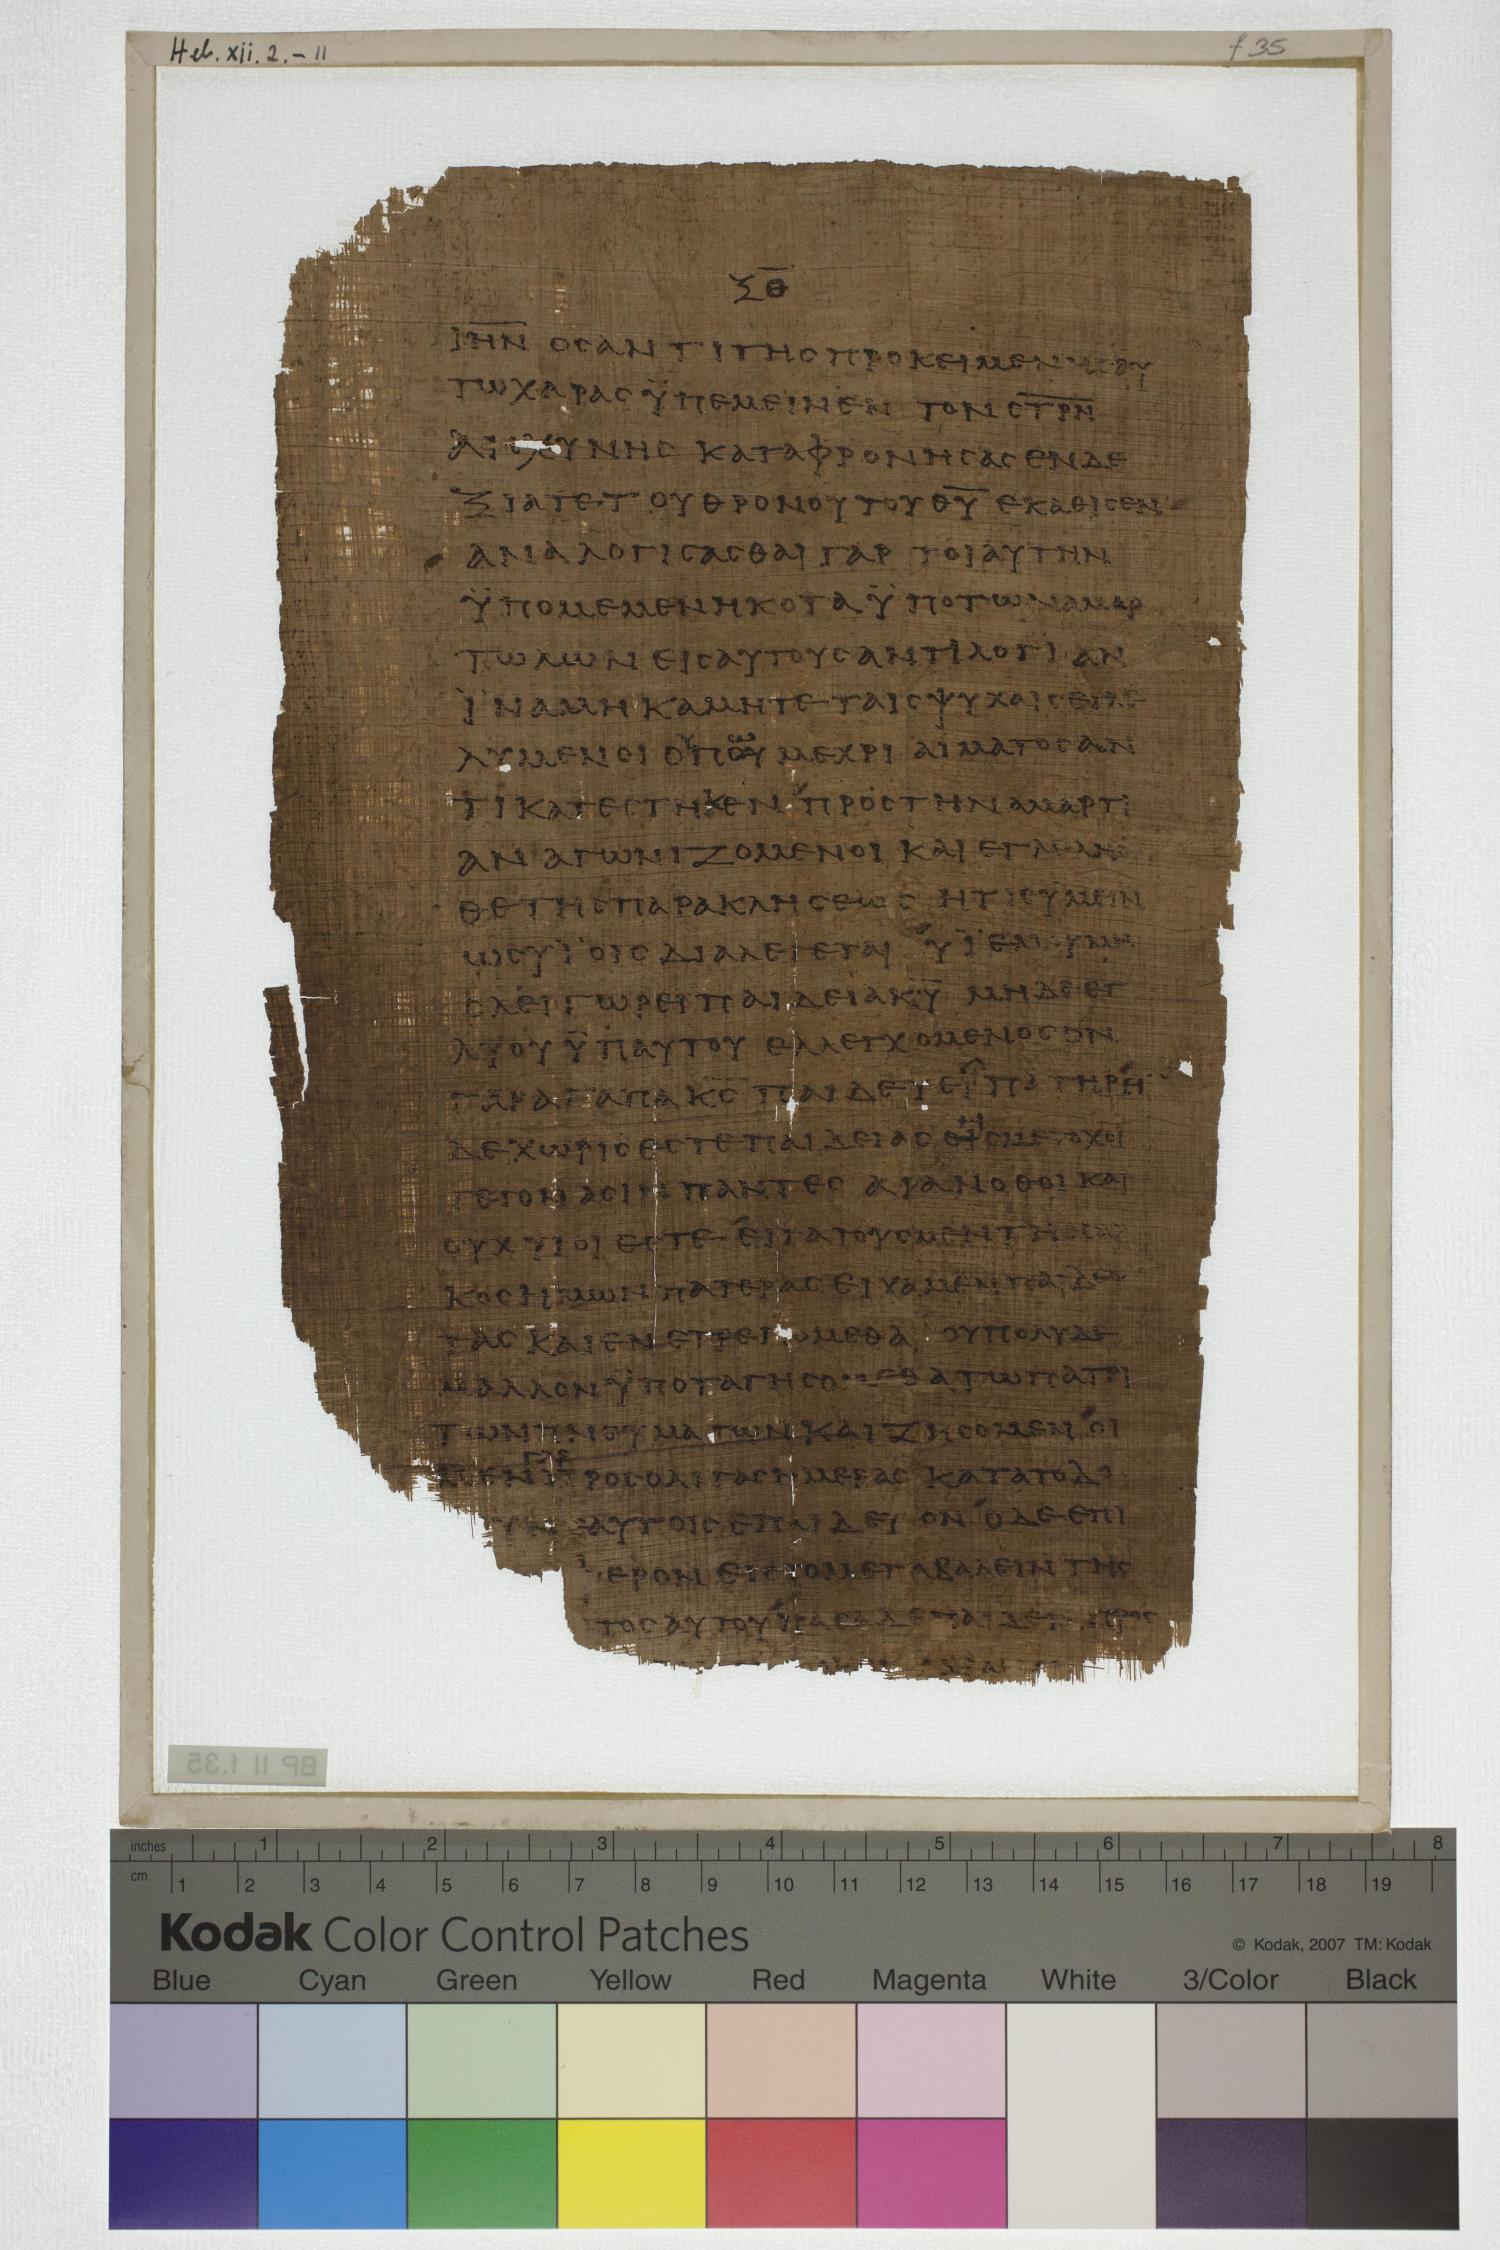 Heb. xii. 2. – 11
f 35
ξθ
ιην ος αντι της προκειμενης αυ
τω χαρας ϋπεμεινεν τον στρν
αισχυνης καταφρονησας εν δε
ξια τε του θρονου του θυ εκαθισεν
αναλογισασθαι γαρ τοιαυτην
ϋπομεμενηκοτα ϋπο των αμαρ
τωλων εις αυτους αντιλογιαν
ϊνα μη καμητε ταις ψυχαις
λυμενοι μεχρι αιματος αν
τικατεστηκεν προς την αμαρτι
αν αγωνιζομενοι και
θε της παρακλησεως ητις ϋμειν
ως υϊοις διαλεγεται
ολειγωρει παιδεια κυ μηδε εγ
λυου ϋπ αυτου ελλεγχομενος ον
γαρ αγαπα κς παιδευει
δε χωρις εστε παιδειας
γεγονασιν παντες αρα νοθοι και
ουχ υιοι εστε ειτα τους μεν
κος ημων πατερας ειχαμεν παιδευ
τας και ενετρεπομεθα ου πολυ δε
μαλλον ϋποταγησομεθα τω πατρι
των πνευματων και ζησομεν οι
μεν γαρ προς ολιγας ημερας κατα το δο
αυτοις επαιδευον ο δε επι
φερον εις το μεταβαλειν της
τος αυτου
BP II f.35
inches 1 2 3 4 5 6 7 8
cm 1 2 3 4 5 6 7 8 9 10 11 12 13 14 15 16 17 18 19
Kodak Color Control Patches
© Kodak, 2007 TM: Kodak
Blue Cyan Green Yellow Red Magenta White 3/Color Black